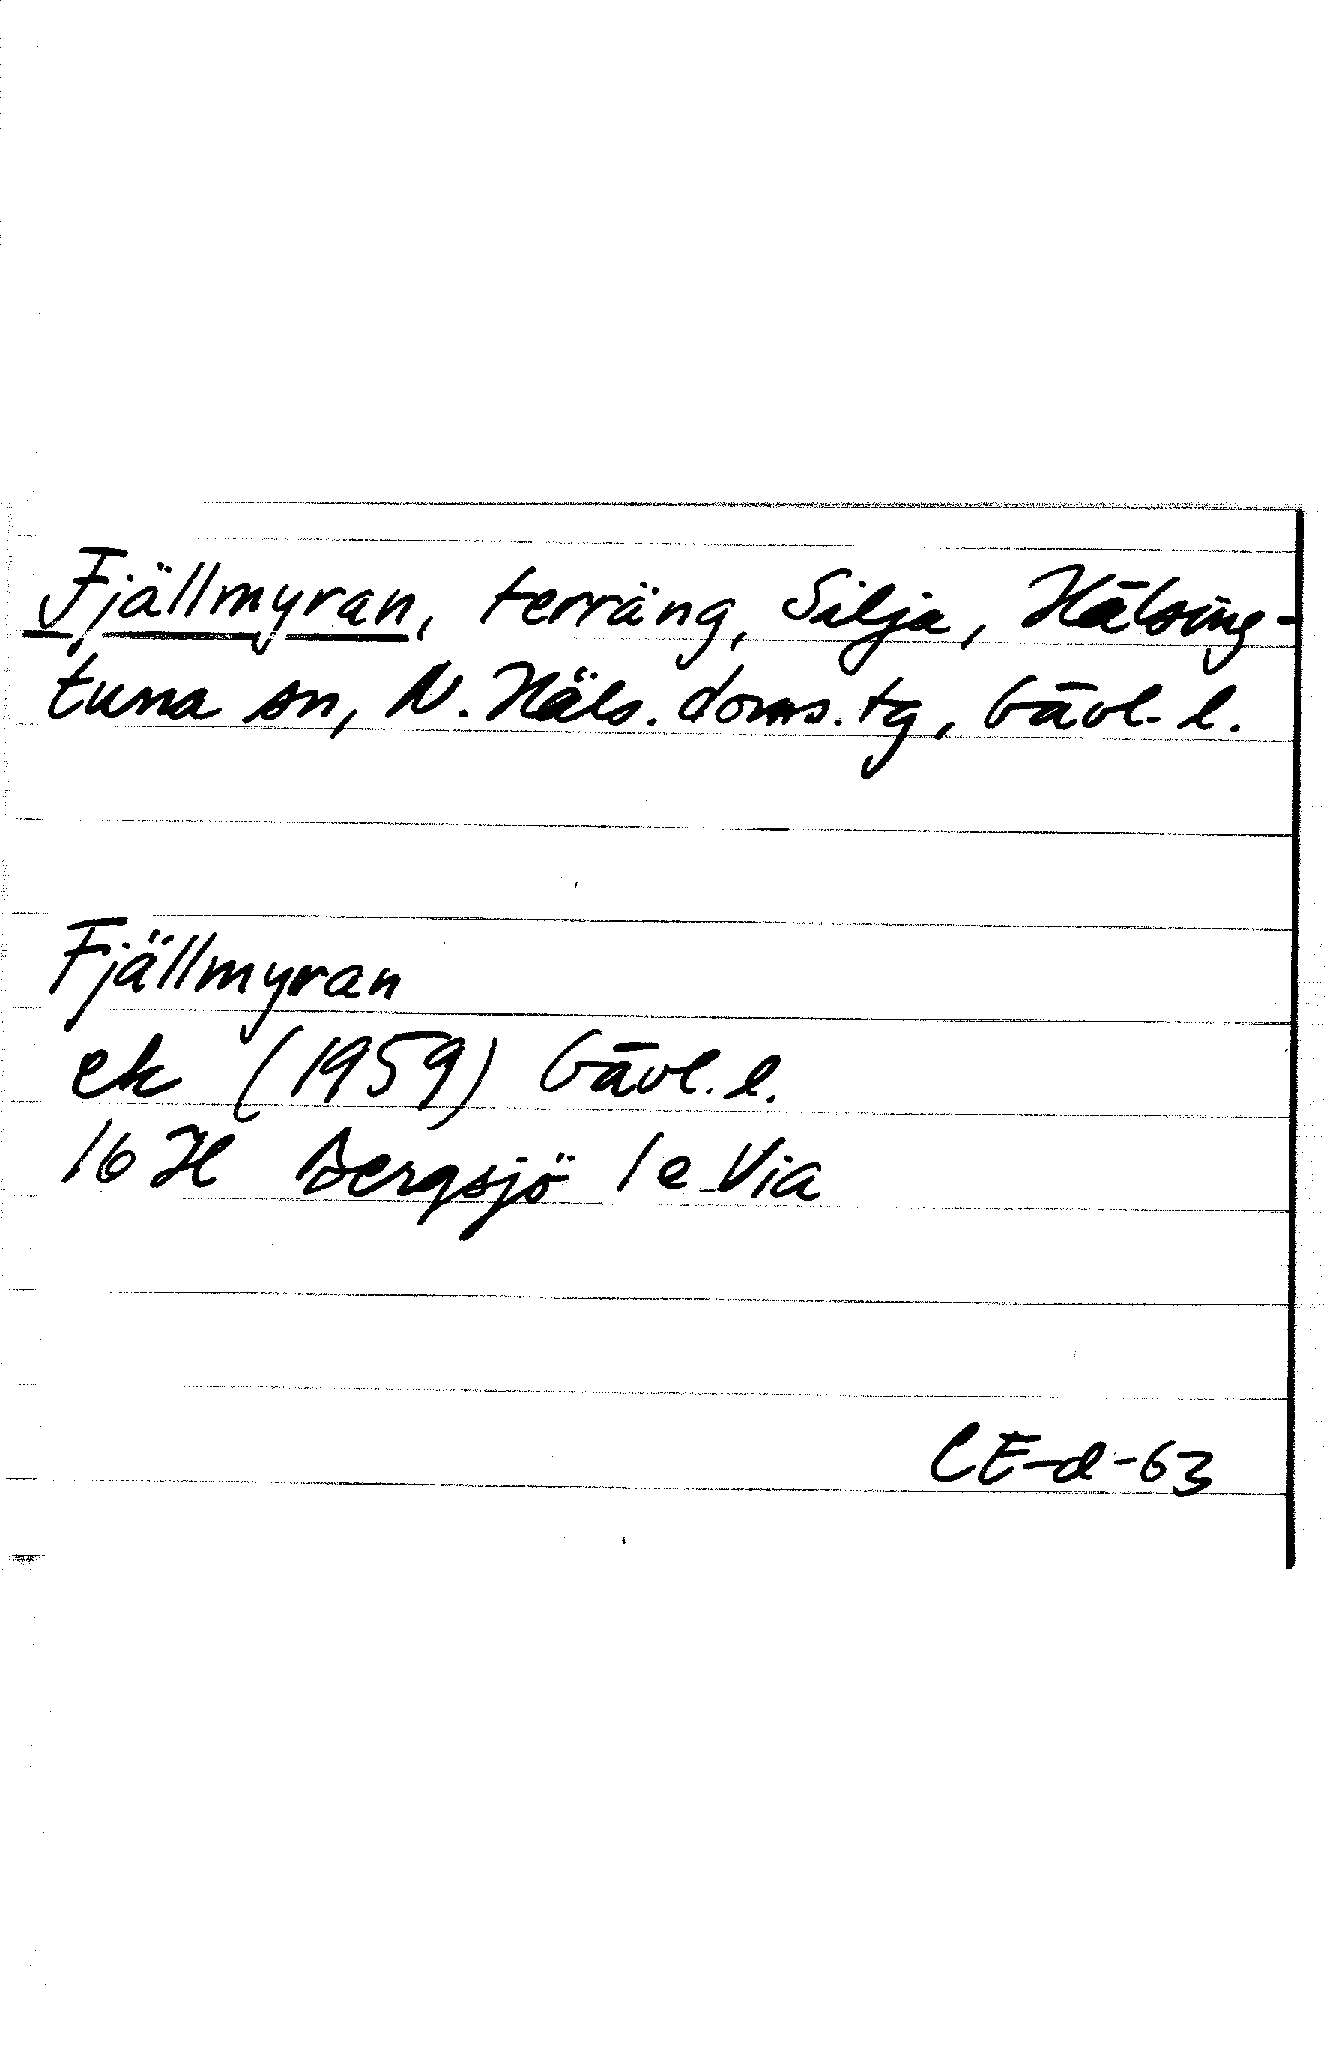 Fjällmyran, terräng, Silja, Hälsing-
tuna sn, N. Häls. doms. tg, Gävl. l.
Fjällmyran
ek (1959) Gävl. l.
16 H Bergsjö 1e Via
CE-d-63